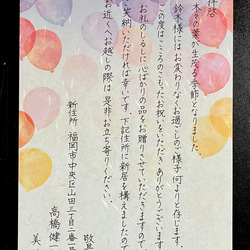 拝啓
木々の葉が生茂る季節となりました。
鈴木様にはお変わりなくお過ごしのご様子何よりと存じます。
この度は、こころのこもったお祝いをいただきありがとうございます
お礼のしるしに心ばかりの品をお贈りさせていただきますので
笑納いただければ幸いです。下記住所に新居を構えましたので
お近くへお越しの際は是非お立ち寄りください。
敬具
新住所 福岡市中央区山田三丁目二番
高橋健
美